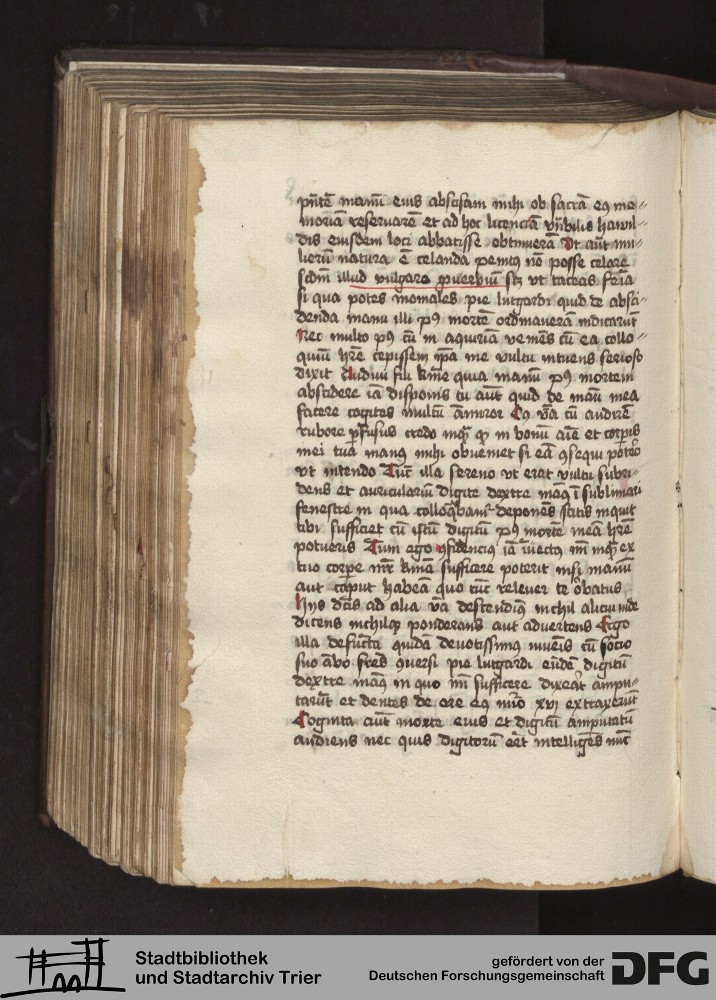 pn̄tē manū eius abscisam mihi ob sacrā eꝰ me⸗
moriā reseruarem et ad hoc licenciā vn̄bilis hawil⸗
dis eiusdem loci abbatisse obtinuerā Vt aūt mu⸗
lierū natura ē celanda penitꝰ nō posse celare
scdm̄ illud vulgare ꝓuerbiū sꝫ vt taceas feīa
si qua potes moniales pie lutgardi quid de absci⸗
denda manu illi pꝰ mortē ordinauerā indicarūt
Nec multo pꝰ cū in aquiriā veniens cū ea collo⸗
quiū hr̄e cepissem ip̄a me vultu intuens serioso
dixit Audiui fili kīme quia manū pꝰ mortem
abscidere iā disponis tu aūt quid de manu mea
facere cogites multū āmiror Eꝰ v̄ba cū audirē
rubore ꝑfusus credo inqꝫ ꝙ in bonū aīe et corꝑis
mei tua manꝰ mihi obueniet si eā ꝯsequi poteꝛo
vt intendo Tūc illa sereno vt erat vultu subri⸗
dens et auricularīū digitū dextre manꝰ ī sublimari
fenestre in qua colloq̄bant̄ deponens satis inquit
tibi sufficiet cū istū digitū pꝰ mortē meā hr̄e
potueris Tum ego ꝯfidenciꝰ iā nichil inqꝫ ex
tuo corꝑe mr̄ kīma sufficere poterit nisi manū
aut caput habeā quo tūc releuer te orbatus
Hijs dc̄is ad alia v̄ba descendimꝰ nichil aliciꝰ inde
dicens nichilqꝫ ponderans aut aduertens Ergo
illa defuncta quidā deuotissimꝰ iuuenis cū socio
suo ambo fr̄es ꝯuersi pie lutgardi eūdē digitū
dextre manꝰ in quo m̄ sufficere dixerat ampu⸗
tarūt et dentes de ore eꝰ nūo xvi extraxerūt
Cognita aūt morte eius et digitū amputatū
audiens nec quis digitorū eēt intelligēs nūc
Stadtbibliothek
und Stadtarchiv Trier
gefördert von der
Deutschen Forschungsgemeinschaft
DFG